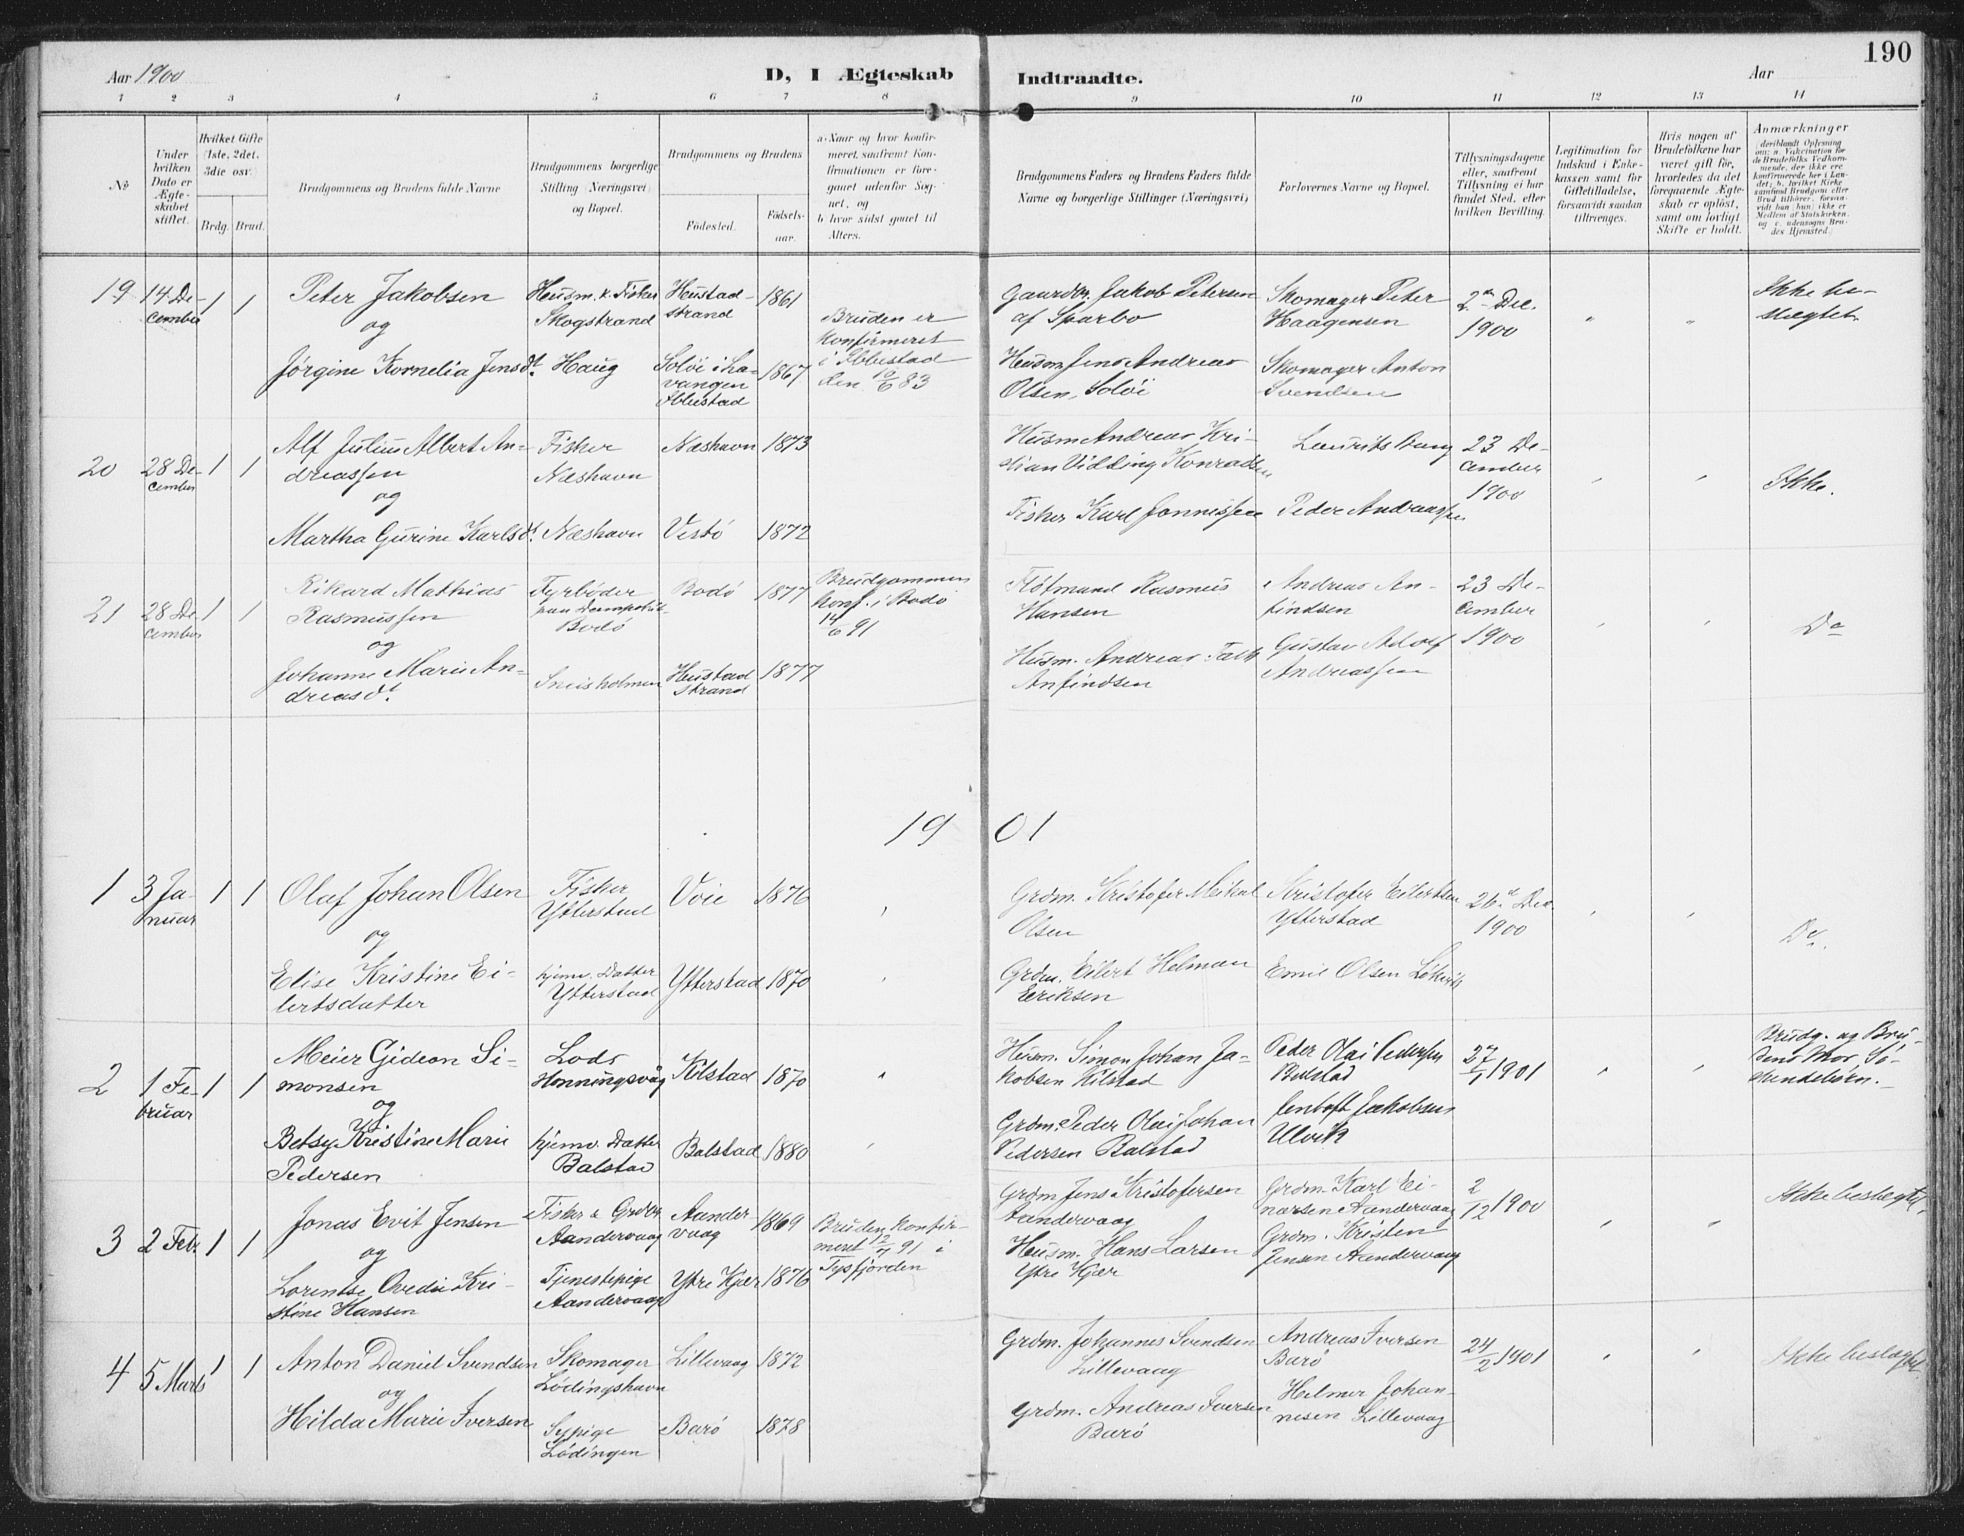 190
Aar 1900
D, I Ægteskab
Indtraadte.
Aar
1 2 3 4 5 6 7 8 9 10 11 12 13 14
No
Under hvilken Dato er Ægteskabet stiftet.
Hvilket Gifte (1ste, 2det, 3die osv.)
Brdg. Brud.
Brudgommens og Brudens fulde Navne
Brudgommens borgerlige Stilling (Næringsvei) og Bopæl.
Brudgommens og Brudens
Födested.
Födselsaar.
a. Naar og hvor konfirmeret, saafremt Konfirmationen er foregaaet udenfor Sognet, og
b. hvor sidst gaaet til Alters.
Brudgommens Faders og Brudens Faders fulde Navne og borgerlige Stillinger (Næringsvei)
Forlovernes Navne og Bopæl.
Tillysningsdagene eller, saafremt Tillysning ei har fundet Sted, efter hvilken Bevilling.
Legitimation for Indskud i Enkekassen samt for Giftetilladelse, forsaavidt saadan tiltrænges.
Hvis nogen af Brudefolkene har været gift før, hvorledes da det foregaaende Ægteskab er opløst, samt om lovligt Skifte er holdt.
Anmærkninger
19
14 December
1 1
Peter Jakobsen
og
Jørgine Kornelia Jensdt.
Husm. & Fisker
Skogstrand
Haug
Heustadstrand
Soløi i Lavangen
Ibbestad
1861
1867
Bruden er
konfirmeret
i Ibbestad
den 10/6 83
Gaardbr. Jakob Petersen
af Sparbo
Husm. Jens Andreas
Olsen, Soløi
Skomager Peter
Haagensen
Skomager Anton
Svendsen
2den Dec.
1900
Ikke beslegtet.
20
28 December
1 1
Alf Julius Albert Andreassen
og
Martha Gurine Karlsdt.
Fisker
Næshavn
Næshavn
Næshavn
Vestö
1873
1872
Husm Andreas Kristian Vidding Konradsen
Fisker Karl Jonnissen
Laurits Bang
Peder Andreassen
23 December
1900
Ikke.
21
28 December
1 1
Rikard Mathias
Rasmussen
og
Johanne Marie Andreasdt.
Fyrbøder
paa Dampskib
Bodø
Sneisholmen
Bodø
Heustad
strand
1877
1877
Brudgommen
konf. i Bodø
14/6 91
Fløtmand Rasmus
Hansen
Husm. Andreas Falk
Anfindsen
Andreas Anfindsen
Gustav Adolf
Andreassen
23 December
1900
Do
19 01
1
3 Januar
1 1
Olaf Johan Olsen
og
Elise Kristine Eilertsdatter
Fisker
Ytterstad
hjemv. Datter
Ytterstad
Voie
Ytterstad
1876
1870
Grdm. Kristofer Meikal
Olsen
Grdm. Eilert Helman
Eriksen
Kristofer Eilertsen
Ytterstad
Emil Olsen
26d Dec.
1900
Do.
2
1 Februar
1 1
Meier Gideon Simonsen
og
Betsy Kristine Marie
Pedersen
Lods
Honningsvåg
hjemv. Datter
Balstad
Kilstad
Balstad
1870
1880
Husm. Simon Johan Jakobsen Kilstad
Grdm. Peder Olai Johan
Pedersen Balstad
Peder Olai Pedersen
Balstad
Jentoft Jakobsen
Ulvik
27/1 1901
Brudg. og Brudens Mor, Søskendebørn.
3
2 Feb.
1 1
Jonas Evit Jensen
og
Lorentse Ovedie Kristine Hansen
Fisker & Grdbr
Aandervaag
Tjenestepige
Aandervaag
Aandervaag
Ytre Kjær
1869
1876
Bruden konfirmeret 12/7 91 i
Tysfjorden
Grdm Jens Kristofersen
Aandervaag
Husm. Hans Larsen
Ytre Kjær
Grdm. Karl Einarsen Aandervaag
Grdm. Kristen
Jensen Aandervaag
2/12 1900
Ikke beslegtet.
4
5 Marts
1 1
Anton Daniel Svendsen
og
Hilda Marie Iversen
Skomager
Lødingshavn
Sypige
Lødingen
Lillevaag
Barø
1872
1878
Grdm. Johannes Svendsen
Lillevaag
Grdm. Andreas Iversen
Barø
Andreas Iversen
Barø
Helmer Johannesen Lillevaag
24/2 1901
Ikke beslegtet.